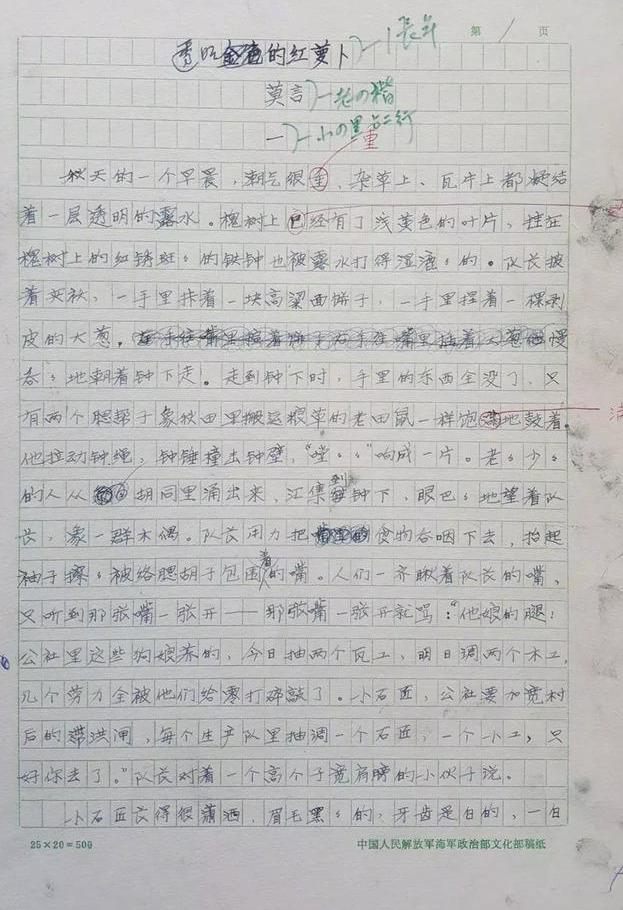 第 1 页
金色的红萝卜
莫言
一
秋天的一个早晨,潮气很重,杂草上、瓦片上都凝结
着一层透明的露水。槐树上已经有了浅黄色的叶片,挂在
槐树上的红锈斑々的铁钟也被露水打得湿漉々的。队长披
着夹袄,一手里拤着一块高粱面饼子,一手里捏着一棵剥
皮的大葱,慢
吞々地朝着钟下走。走到钟下时,手里的东西全没了,只
有两个腮帮子象秋田里搬运粮草的老田鼠一样饱满地鼓着。
他拉动钟绳,钟锤撞击钟壁,"嘡々々"响成一片。老々少々
的人从胡同里涌出来,汇集到钟下,眼巴々地望着队
长,象一群木偶。队长用力把食物吞咽下去,抬起
袖子擦々被络腮胡子包围着的嘴。人们一齐瞅着队长的嘴,
只听到那张嘴一张开——那张嘴一张开就骂:"他娘的腿!
公社里这些狗娘养的,今日抽两个瓦工,明日调两个木工,
几个劳力全被他们给零打碎敲了。小石匠,公社要加宽村
后的滞洪闸,每个生产队里抽调一个石匠,一个小工,只
好你去了。"队长对着一个高个子宽肩膀的小伙子说。
小石匠长得很潇洒,眉毛黑々的,牙齿是白的,一白
25×20=500
中国人民解放军海军政治部文化部稿纸